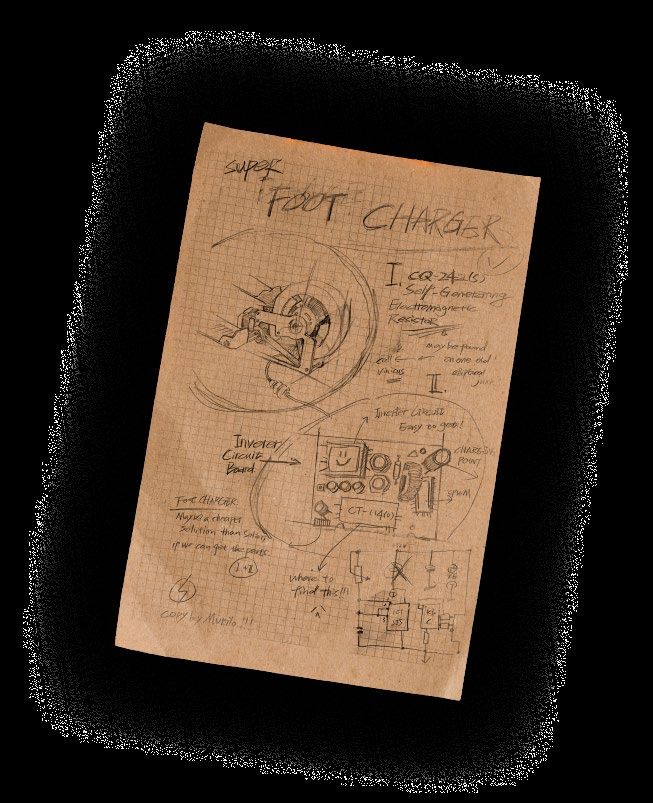 super
FOOT CHARGER
I. CQ-242(S)
Self-Generating
Electromagnetic
Resistor
maybe found
on one old
call
vinicus
II.
Inverter Circuit
Easy to get!
Inverter
Circuit
Board
CHARGING
POINT
CT-(1410)-
Foot CHARGER
Maybe a cheaper
solution than Solar
if we can get the parts.
where to
find this!!!
copy by Murilo !!!